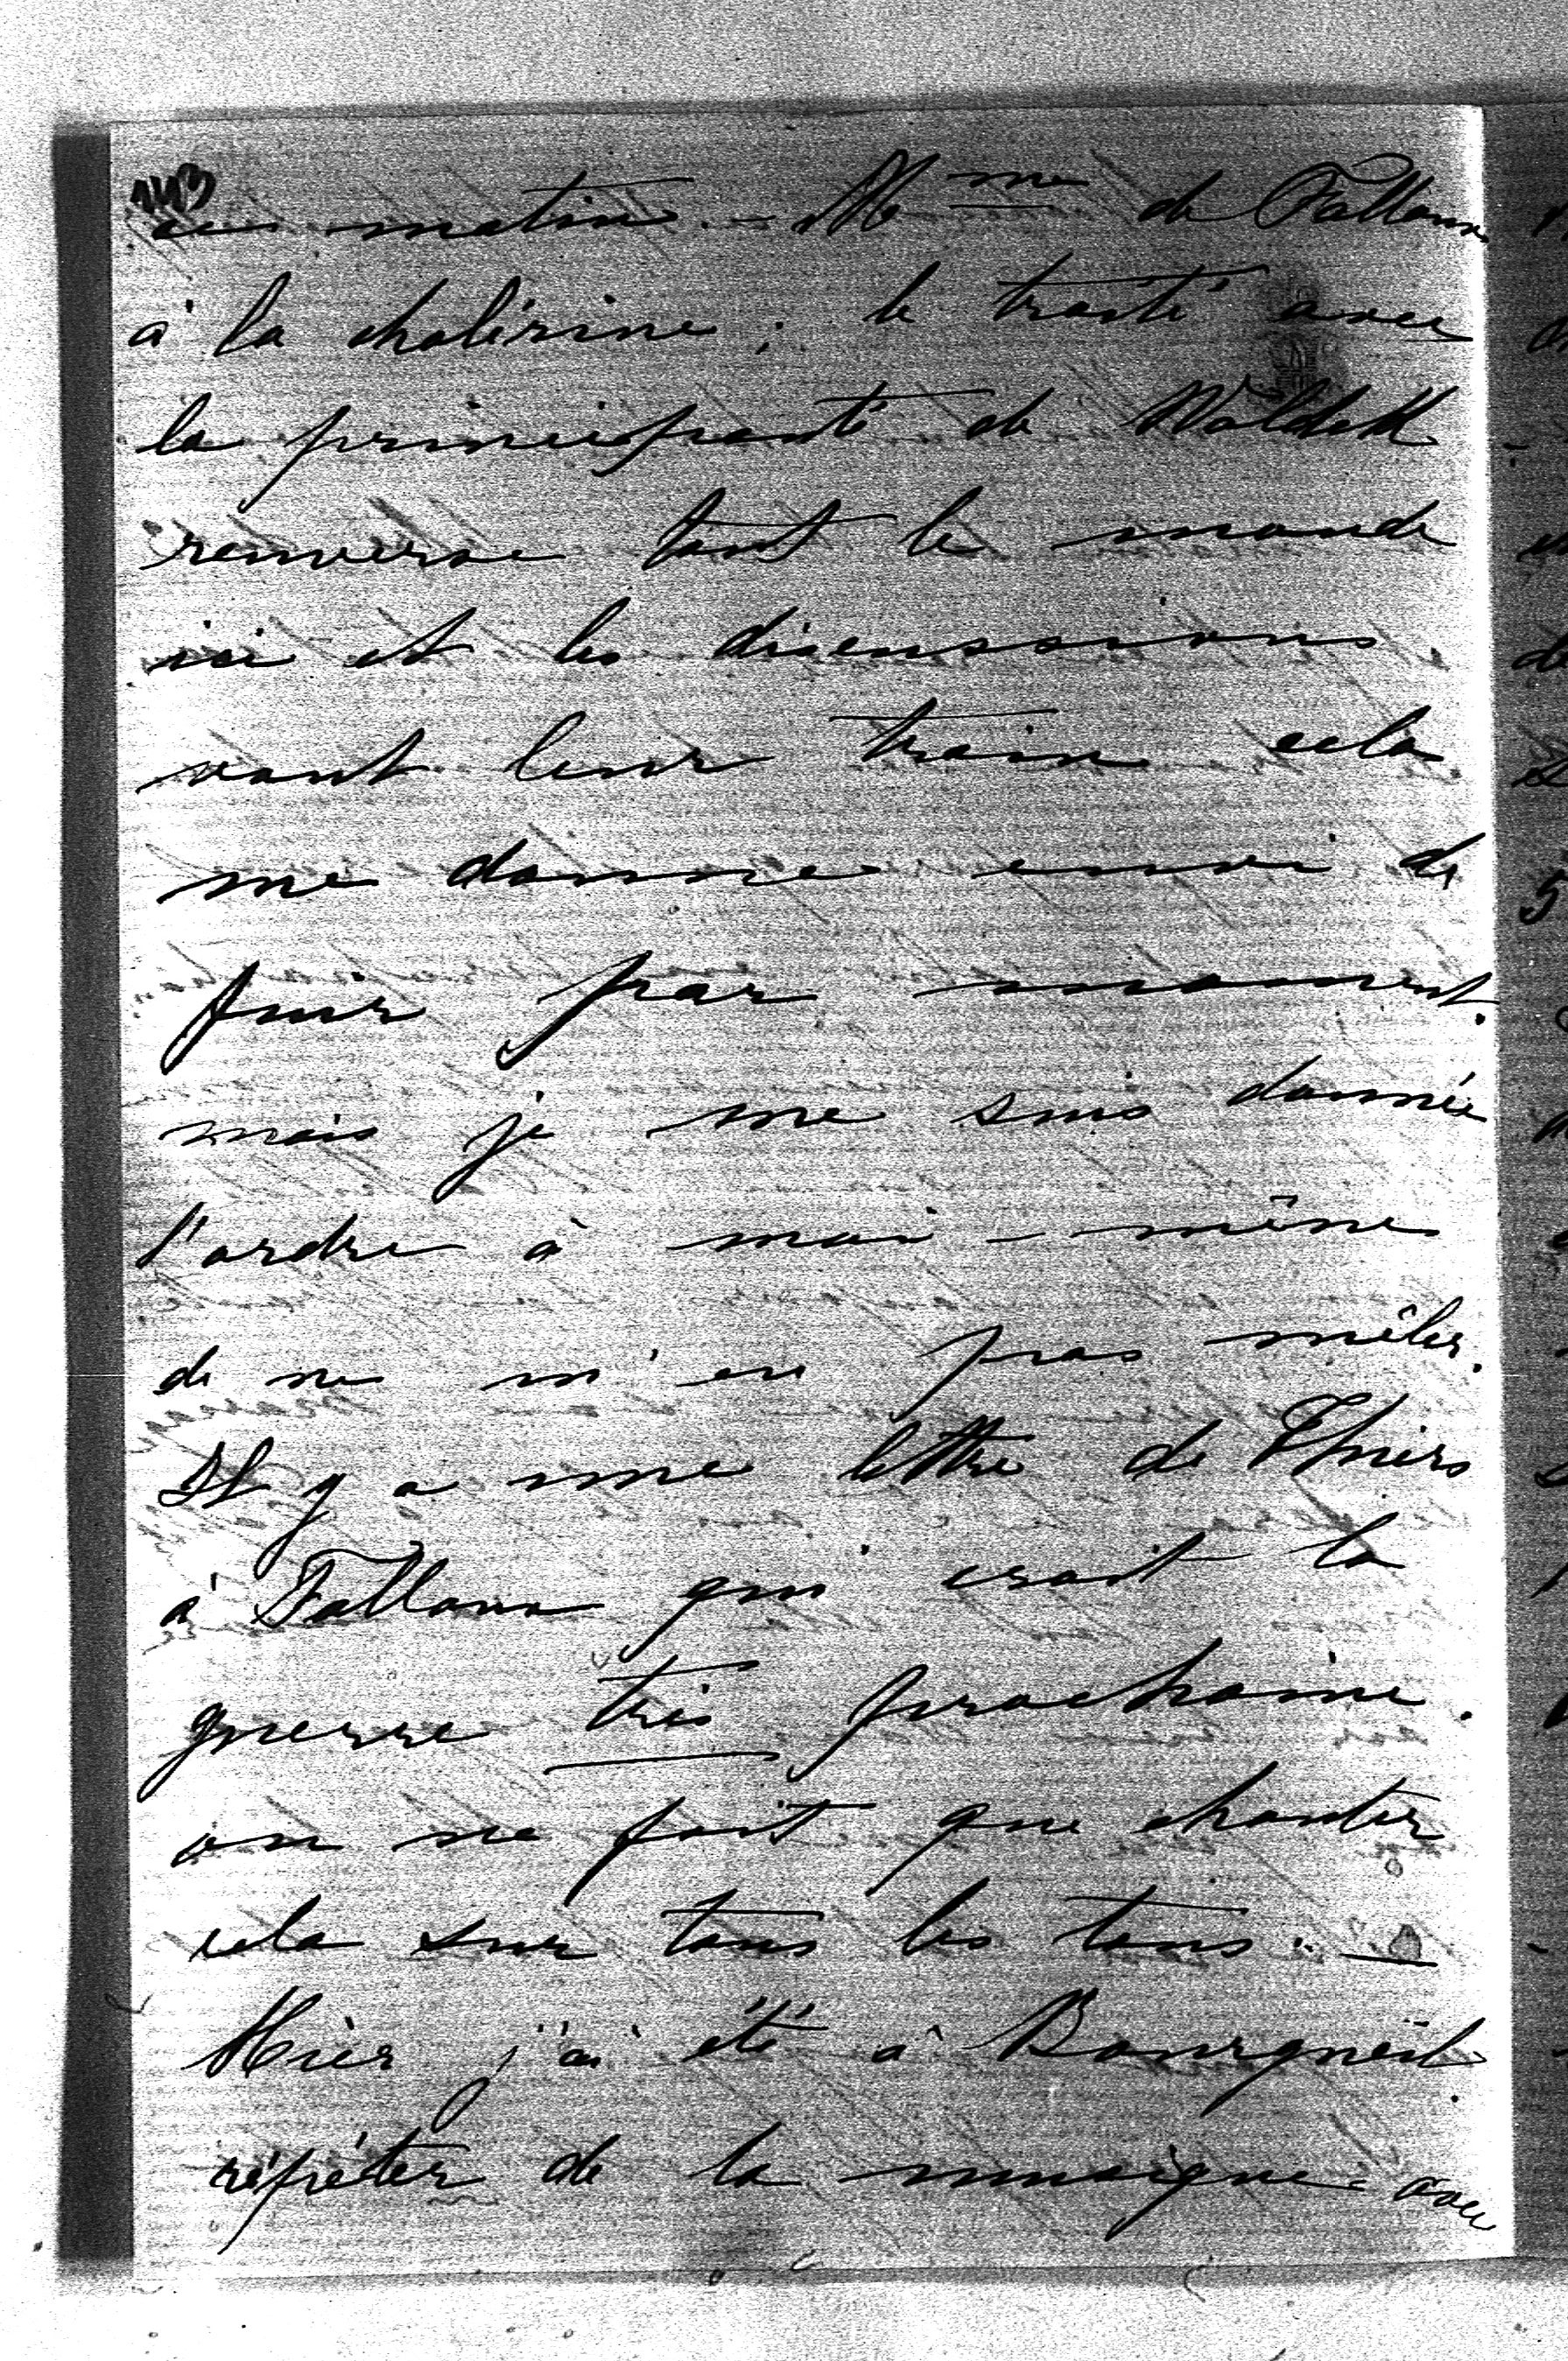 143
ce matin. – Mme de Falloux
à la cholérine ; le traité avec
la principauté de Waldeck
renverse tout le monde
ici et les discussions
vont leur train cela
me donne envi de
fuir par moment.
mais je me suis donnée
l'ordre à moi-même
de ne m'en pas mêler.
Il y a une lettre de Thiers
à Falloux qui croit la
guerre très prochaine.
on ne fait que chanter
cela sur tous les tons. —
Hier j'ai été à Bourgneuil
répéter de la musique avec